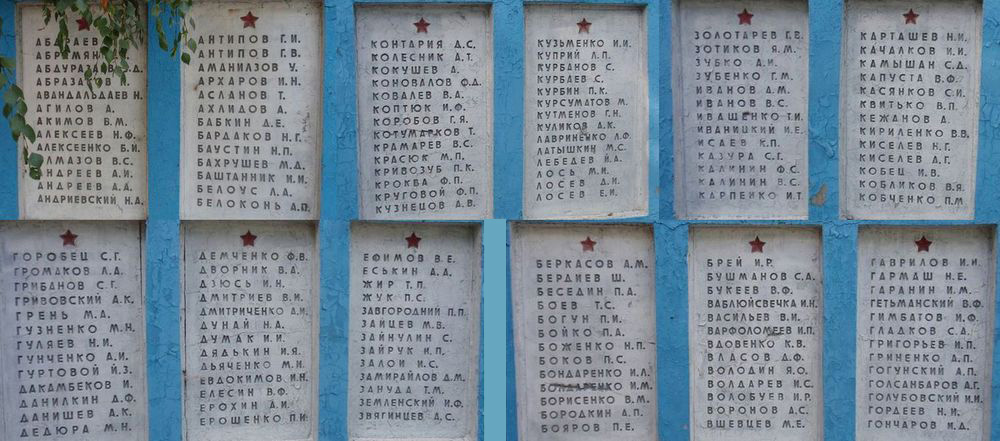 АБДРАЕВ
АБРАМЯН
АБДУРАЗАКОВ Э.Д.
АБРАЗАКОВ
АВАНДАЛЬДАЕВ Н.
АГИЛОВ А.
АКИМОВ В.М.
АЛЕКСЕЕВ Н.Ф.
АЛЕКСЕЕНКО Б.И.
АЛМАЗОВ В.С.
АНДРЕЕВ А.И.
АНДРЕЕВ А.А.
АНДРИЕВСКИЙ Н.А.
АНТИПОВ Г.И.
АНТИПОВ Г.В.
АМАНИЛЗОВ У.
АРХАРОВ И.Н.
АСЛАНОВ Т.
АХЛИДОВ А.
БАБКИН Д.Е.
БАРДАКОВ Н.Г.
БАУСТИН Н.П.
БАХРУШЕВ М.Д.
БАШТАННИК И.И.
БЕЛОУС Л.А.
БЕЛОКОНЬ А.П.
КОНТАРИЯ Д.С.
КОЛЕСНИК А.Т.
КОКУШЕВ А.
КОНОВАЛОВ Ф.Д.
КОВАЛЕВ В.А.
КОПТЮК И.Ф.
КОРОБОВ Г.Я.
КОТУМАРКОВ Т.
КРАМАРЕВ В.С.
КРАСЮК М.П.
КРИВОЗУБ П.К.
КРОКВА Ф.П.
КРУГОВОЙ Ф.П.
КУЗНЕЦОВ А.В.
КУЗЬМЕНКО И.И.
КУПРИЙ Л.П.
КУРБАНОВ С.
КУРБАЕВ С.
КУРБИН П.К.
КУРСУМАТОВ М.
КУТМЕНОВ Г.Н.
КУЛИКОВ А.К.
ЛАВРИНЕНКО Л.Ф.
ЛАТЫШКИН М.С.
ЛЕБЕДЕВ И.А.
ЛОСЬ М.И.
ЛОСЕВ Д.И.
ЛОСЕВ Е.И.
ЗОЛОТАРЕВ Г.В.
ЗОТИКОВ Я.М.
ЗУБКО А.И.
ЗУБЕНКО Г.М.
ИВАНОВ А.М.
ИВАНОВ В.С.
ИВАЩЕНКО Т.И.
ИВАНИЦКИЙ И.Е.
ИСАЕВ К.П.
КАЗУРА С.Г.
КАЛИНИН Ф.С.
КАЛИНИН В.С.
КАРПЕНКО И.Т.
КАРТАШЕВ Н.И.
КАЧАЛКОВ И.И.
КАМЫШАН С.Д.
КАПУСТА В.Ф.
КАСЯНКОВ С.И.
КВИТЬКО В.П.
КЕЖАНОВ А.
КИРИЛЕНКО В.В.
КИСЕЛЕВ Н.Г.
КИСЕЛЕВ А.Г.
КОБЕЦ И.В.
КОБЛИКОВ В.Я.
КОБЧЕНКО П.М.
ГОРОБЕЦ С.Г.
ГРОМАКОВ Л.А.
ГРИБАНОВ С.Г.
ГРИВОВСКИЙ А.К.
ГРЕНЬ М.А.
ГУЗНЕНКО М.Н.
ГУЛЯЕВ Н.И.
ГУНЧЕНКО А.И.
ГУРТОВОЙ И.З.
ДАКАМБЕКОВ И.
ДАНИЛКИН Д.Ф.
ДАНИШЕВ А.К.
ДЕДЮРА М.Н.
ДЕМЧЕНКО Ф.В.
ДВОРНИК В.А.
ДЗЮСЬ И.Н.
ДМИТРИЕВ В.И.
ДМИТРИЧЕНКО А.И.
ДУНАЙ Н.А.
ДУМАК И.И.
ДЯДЬКИН И.Я.
ДЬЯЧЕНКО М.И.
ЕВДОКИМОВ И.Н.
ЕЛЕСИН В.Ф.
ЕРОХИН А.И.
ЕРОШЕНКО П.И.
ЕФИМОВ В.Е.
ЕСЬКИН А.Д.
ЖИР Т.П.
ЖУК П.С.
ЗАВГОРОДНИЙ П.П.
ЗАЙЦЕВ М.В.
ЗАЙНУЛИН С.
ЗАЙРУК И.П.
ЗАЛОИ И.С.
ЗАМИРАЙЛОВ Д.М.
ЗАНУДА Т.М.
ЗЕМЛЕНСКИЙ И.Ф.
ЗВЯГИНЦЕВ А.С.
БЕРКАСОВ А.М.
БЕРДИЕВ Ш.
БЕСЕДИН П.А.
БОЕВ Т.С.
БОГУН П.И.
БОЙКО П.А.
БОЖЕНКО Н.П.
БОКОВ П.С.
БОНДАРЕНКО И.Л.
БОНДАРЕНКО И.М.
БОРИСЕНКО В.М.
БОРОДКИН А.П.
БОЯРОВ П.Е.
БРЕЙ И.Р.
БУШМАНОВ С.Д.
БУКЕЕВ В.Ф.
ВАБЛЮЙСВЕЧКА И.Н.
ВАСИЛЬЕВ В.И.
ВАРФОЛОМЕЕВ И.П.
ВДОВЕНКО К.В.
ВЛАСОВ Д.Ф.
ВОЛОДИН Я.О.
ВОЛДАРЕВ И.С.
ВОЛОБУЕВ И.Р.
ВОРОНОВ А.С.
ВШЕВЦЕВ М.Е.
ГАВРИЛОВ И.И.
ГАРМАШ Н.Е.
ГАРАНИН И.М.
ГЕТЬМАНСКИЙ В.Ф.
ГИМБАТОВ И.Ф.
ГЛАДКОВ С.Д.
ГРИГОРЬЕВ И.П.
ГРИНЕНКО А.П.
ГОГУНСКИЙ А.П.
ГОЛСАНБАРОВ А.Г.
ГОЛУБОВСКИЙ И.И.
ГОРДЕЕВ Н.И.
ГОНЧАРОВ И.Д.